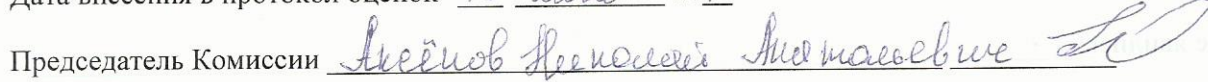 Дата внесения в протокол оценок
Председатель Комиссии Аксёнов Николай Анатольевич